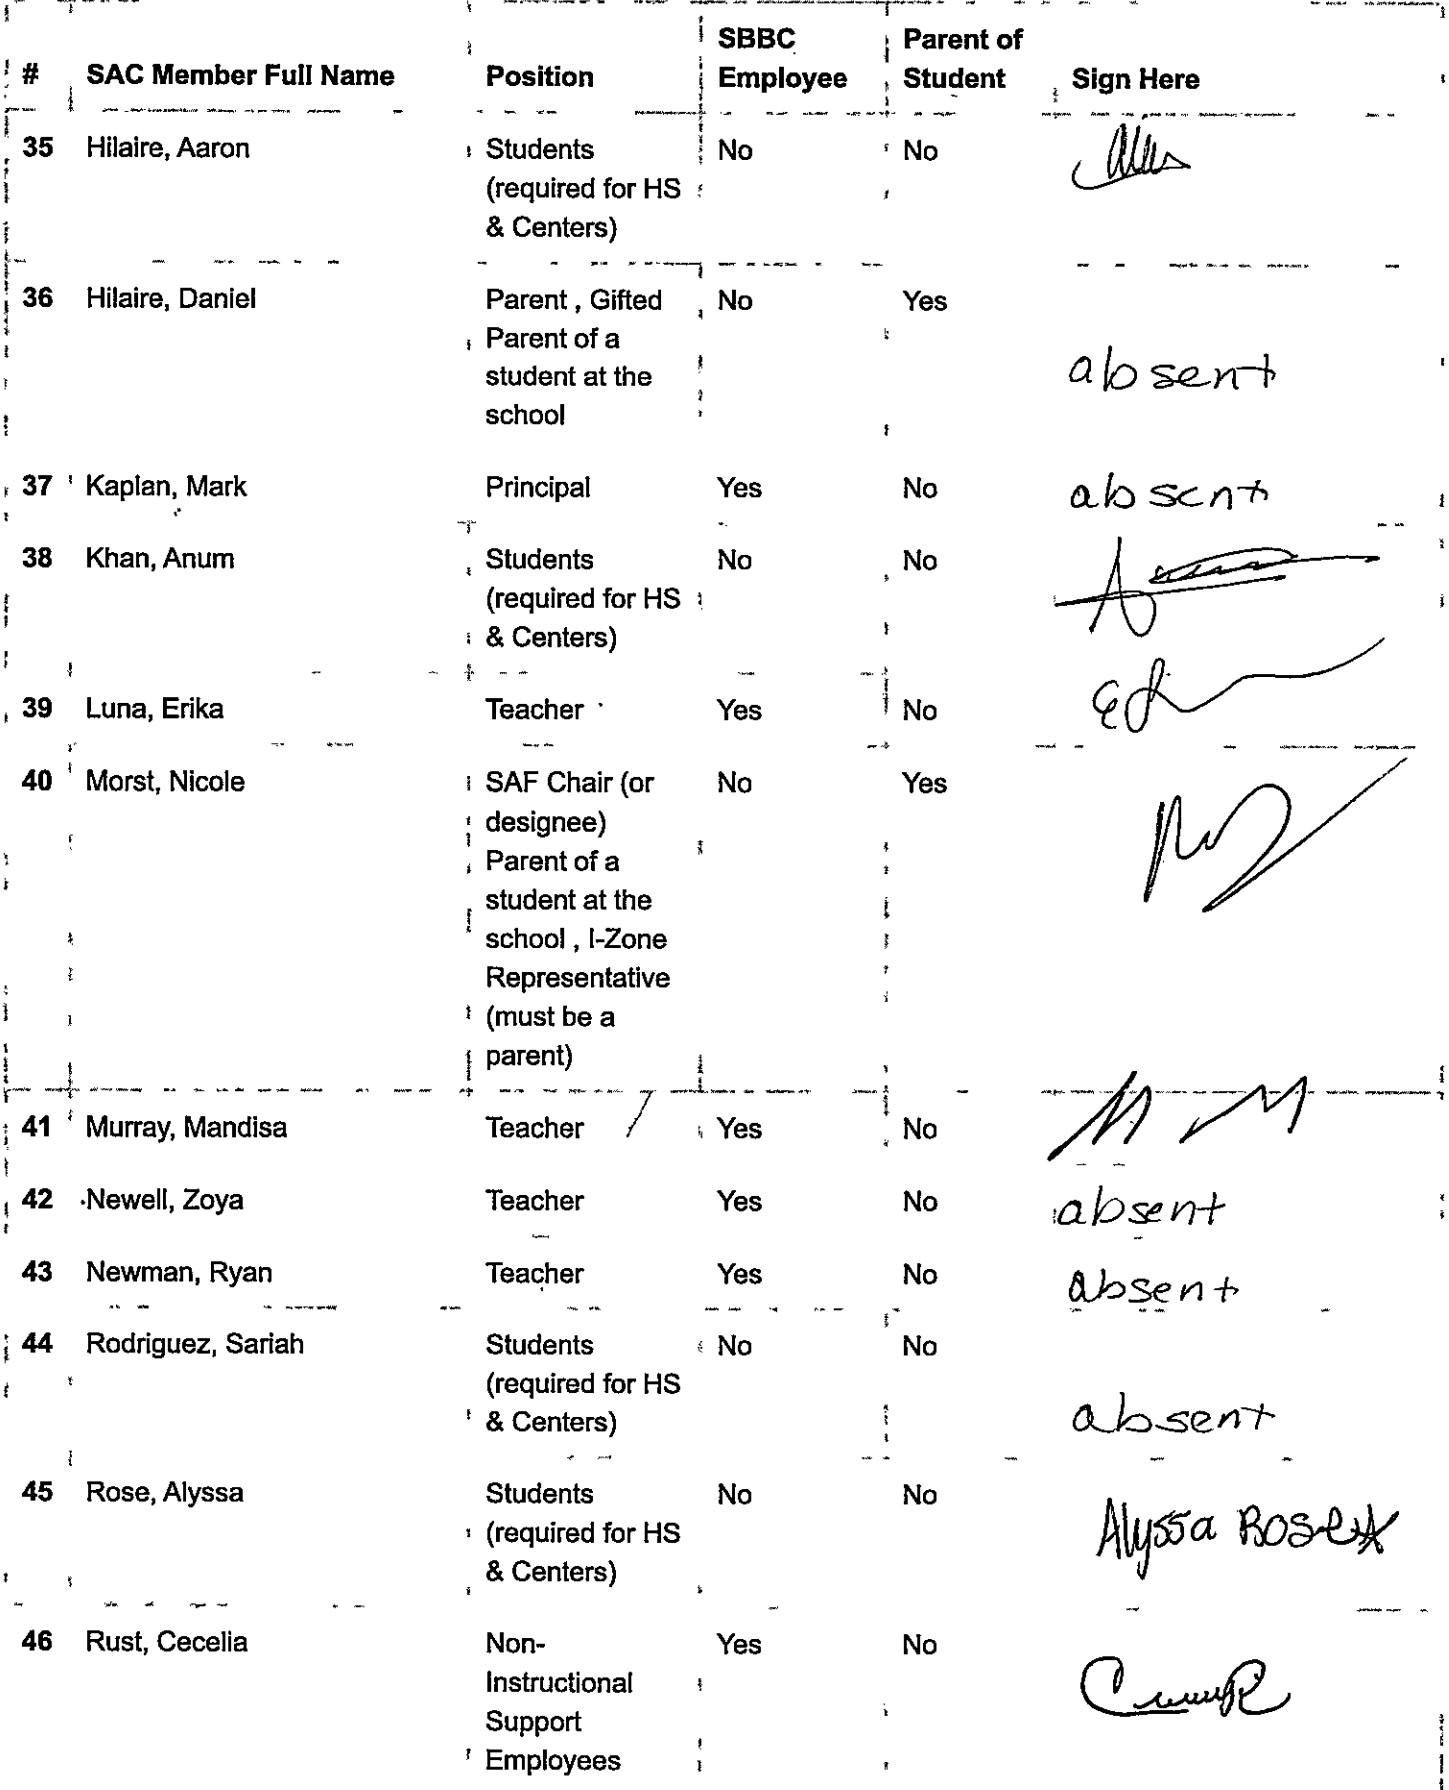 # SAC Member Full Name Position SBBC Employee Parent of Student Sign Here
35 Hilaire, Aaron Students No No
(required for HS
& Centers)
36 Hilaire, Daniel Parent , Gifted No Yes
Parent of a
student at the absent
school
37 Kaplan, Mark Principal Yes No absent
38 Khan, Anum Students No No
(required for HS
& Centers)
39 Luna, Erika Teacher Yes No
40 Morst, Nicole SAF Chair (or No Yes
designee)
Parent of a
student at the
school , I-Zone
Representative
(must be a
parent)
41 Murray, Mandisa Teacher Yes No
42 Newell, Zoya Teacher Yes No absent
43 Newman, Ryan Teacher Yes No absent
44 Rodriguez, Sariah Students No No
(required for HS
& Centers) absent
45 Rose, Alyssa Students No No
(required for HS Alyssa Rose
& Centers)
46 Rust, Cecelia Non- Yes No
Instructional
Support
Employees